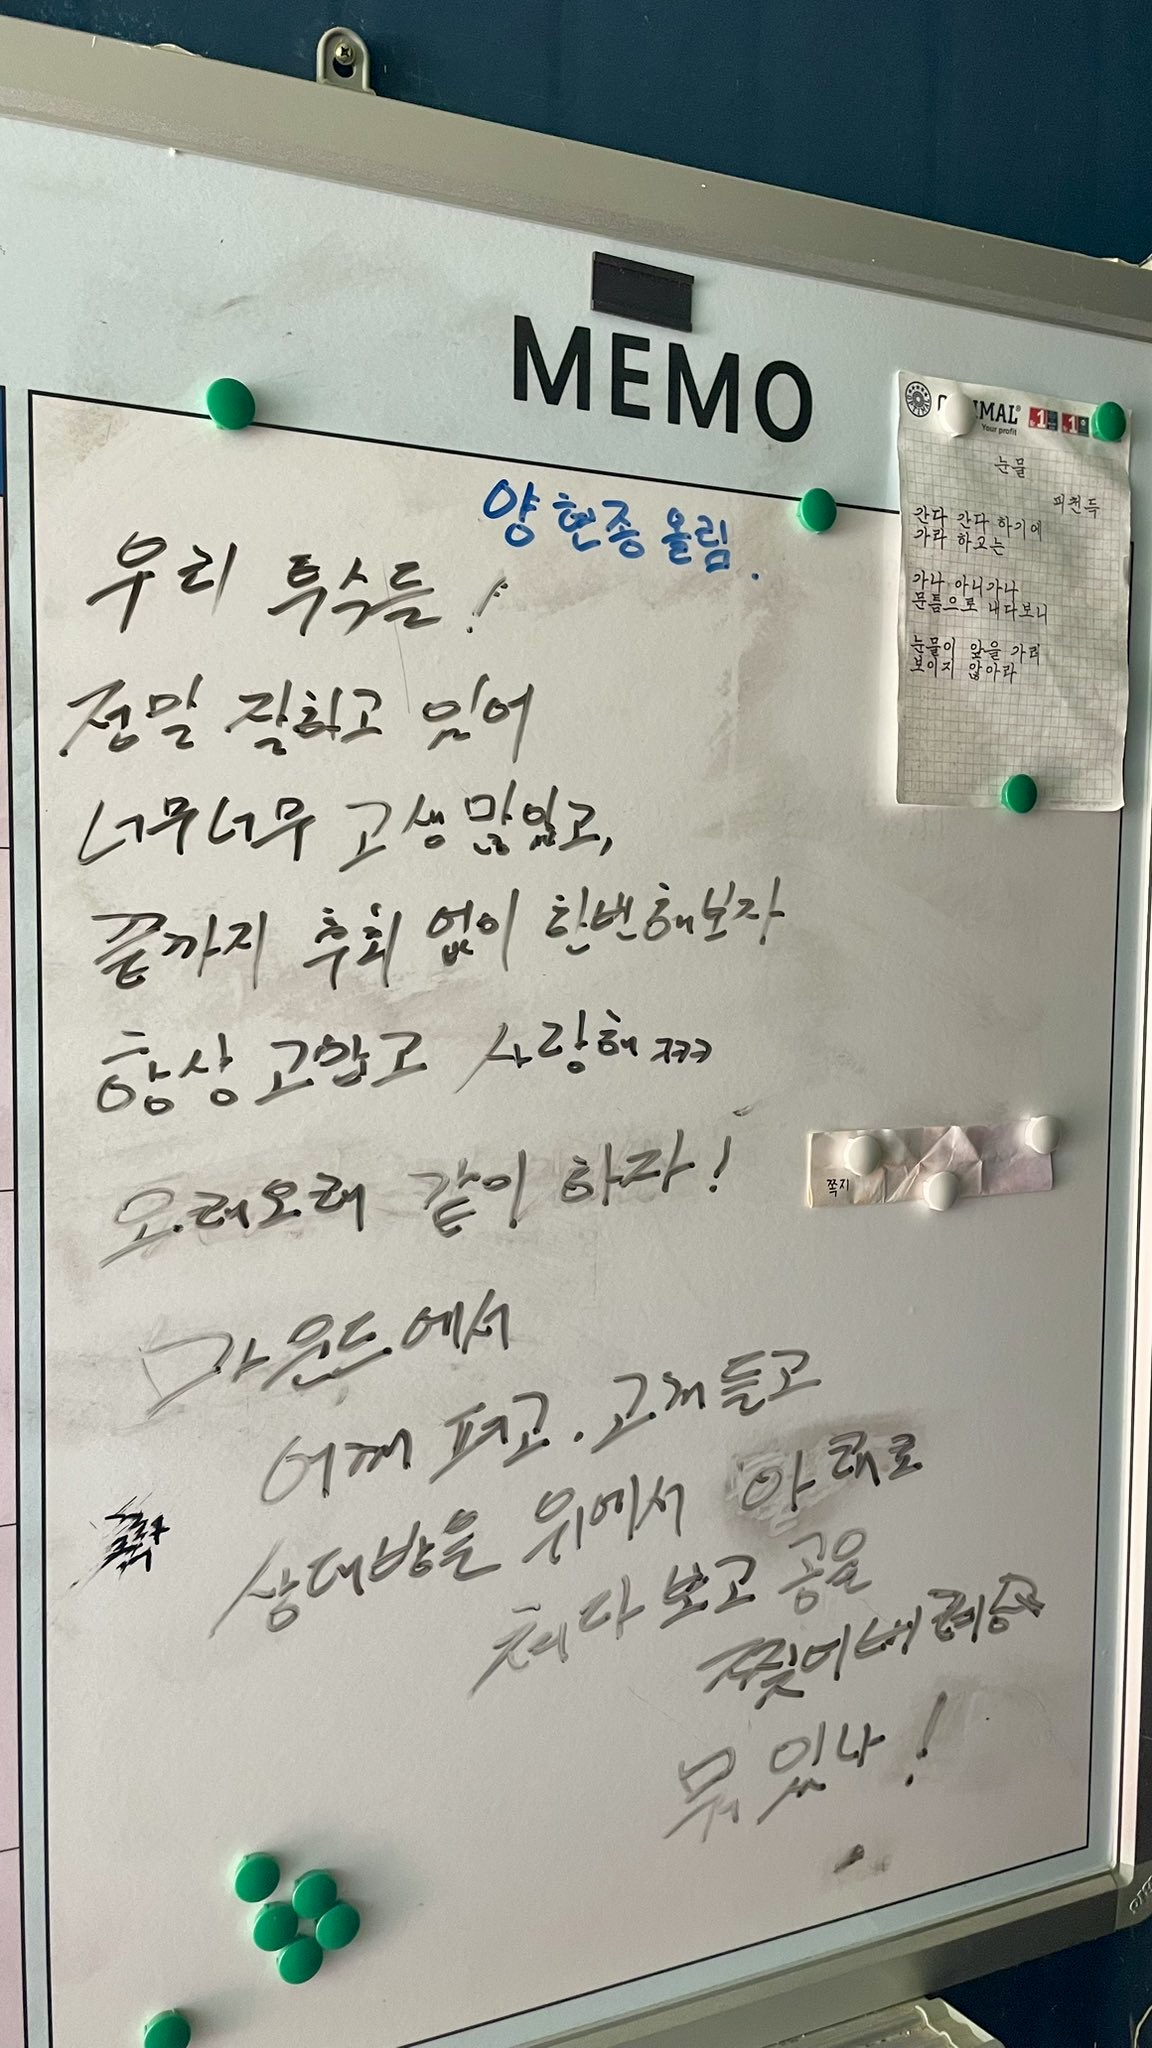 MEMO
양현종 올림.
우리 투수들!
정말 잘하고 있어
너무너무 고생 많았고,
끝까지 후회 없이 한번해보자
항상 고맙고 사랑해 ㅋㅋㅋ
오래오래 같이 하자!
마운드에서
어깨 펴고. 고개 들고
상대방을 위에서 아래로
쳐다 보고 공을
찢어버려
뭐 있나!
OPTIMAL®
Your profit
눈물
피천득
간다 간다 하기에
가라 하고는
가나 아니가나
문틈으로 내다보니
눈물이 앞을 가려
보이지 않아라
쪽지